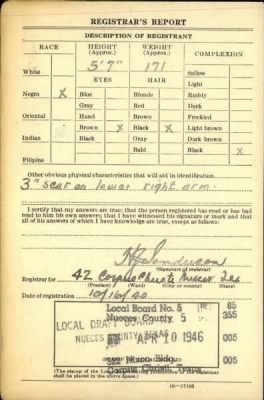 REGISTRAR'S REPORT
DESCRIPTION OF REGISTRANT
RACE
HEIGHT (Approx.)
WEIGHT (Approx.)
COMPLEXION
5'7"
171
White
Sallow
EYES
HAIR
Light
Negro X
Blue
Blonde
Ruddy
Gray
Red
Dark
Oriental
Hazel
Brown
Freckled
Brown X
Black X
Light brown
Indian
Black
Gray
Dark brown
Bald
Black X
Filipino
Other obvious physical characteristics that will aid in identification
3" scar on lower right arm
I certify that my answers are true; that the person registered has read or has had
read to him his own answers; that I have witnessed his signature or mark and that
all of his answers of which I have knowledge are true, except as follows:
(Signature of registrar)
Registrar for 42 Corpus Christi Nueces Tex
(Precinct) (Ward) (City or county) (State)
Date of registration 10/16/40
Local Board No. 5 85
Nueces County 5 355
LOCAL DRAFT BOARD
APR 10 1946
NUECES COUNTY, TEXAS
Nixon Bldg.
Corpus Christi, Texas
(The stamp of the Local
shall be placed in the above space.)
16—17105